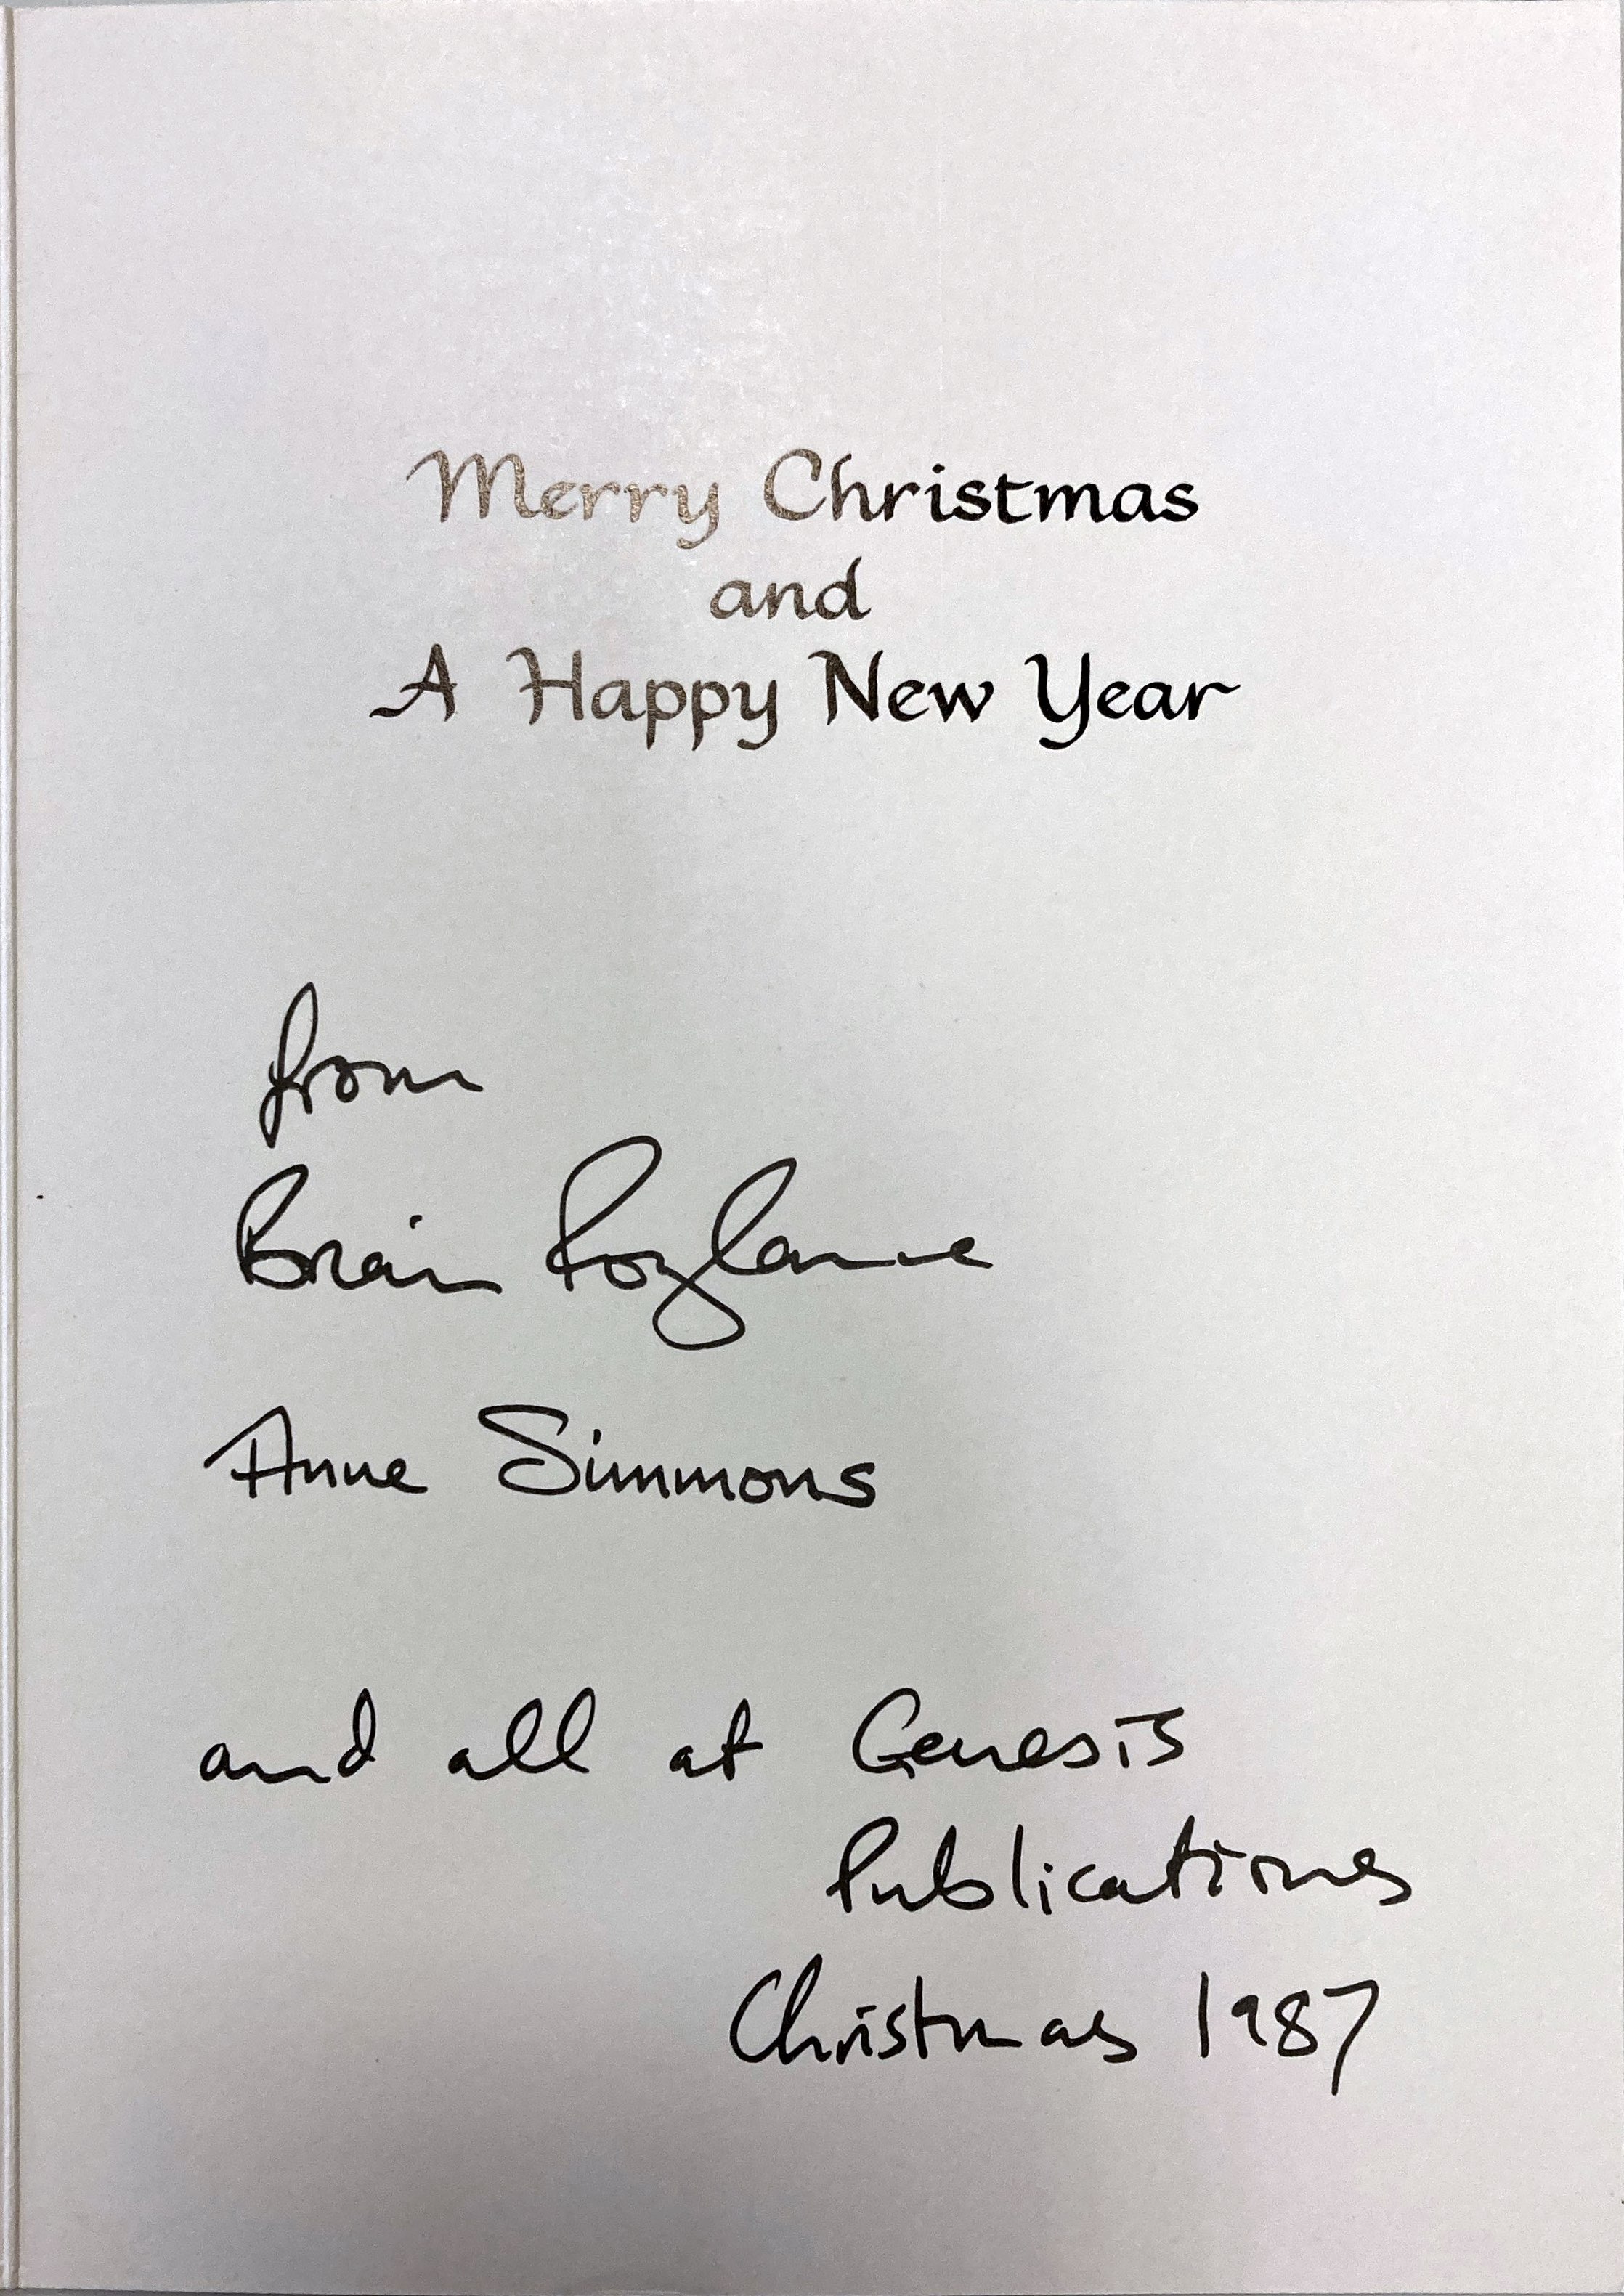 Merry Christmas
and
A Happy New Year
from
Brian Roylance
Anne Simmons
and all at Genesis
Publications
Christmas 1987